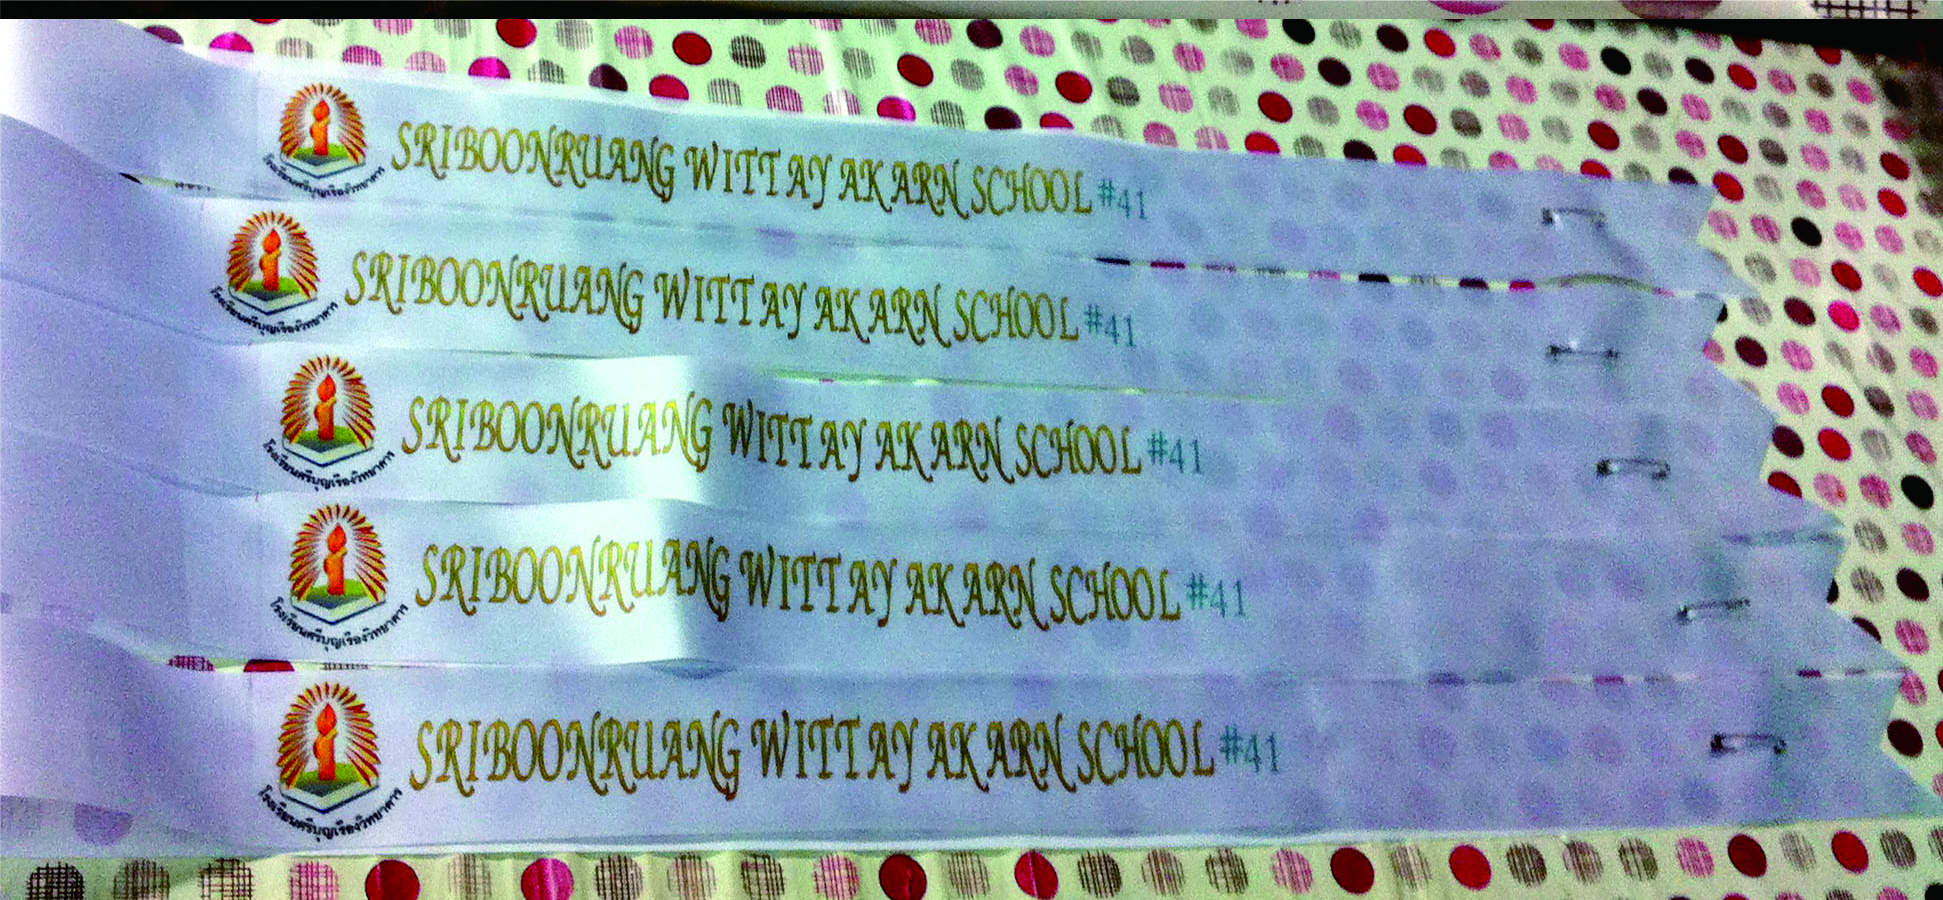 SRIBOONRUANG WITTAYAKARN SCHOOL #41
โรงเรียนศรีบุญเรืองวิทยาคาร
SRIBOONRUANG WITTAYAKARN SCHOOL #41
โรงเรียนศรีบุญเรืองวิทยาคาร
SRIBOONRUANG WITTAYAKARN SCHOOL #41
โรงเรียนศรีบุญเรืองวิทยาคาร
SRIBOONRUANG WITTAYAKARN SCHOOL #41
โรงเรียนศรีบุญเรืองวิทยาคาร
SRIBOONRUANG WITTAYAKARN SCHOOL #41
โรงเรียนศรีบุญเรืองวิทยาคาร